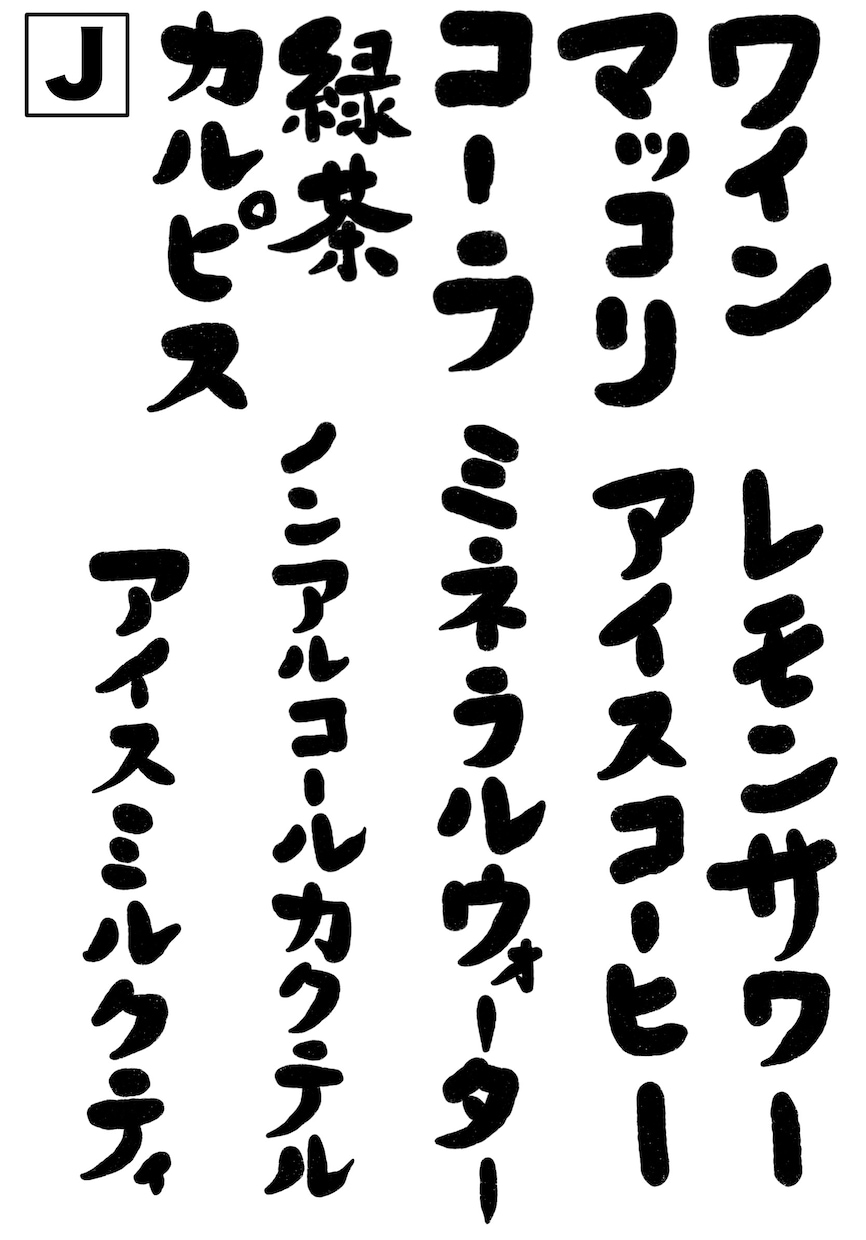 J
ワイン
マッコリ
コーラ
緑茶
カルピス
レモンサワー
アイスコーヒー
ミネラルウォーター
ノンアルコールカクテル
アイスミルクティ